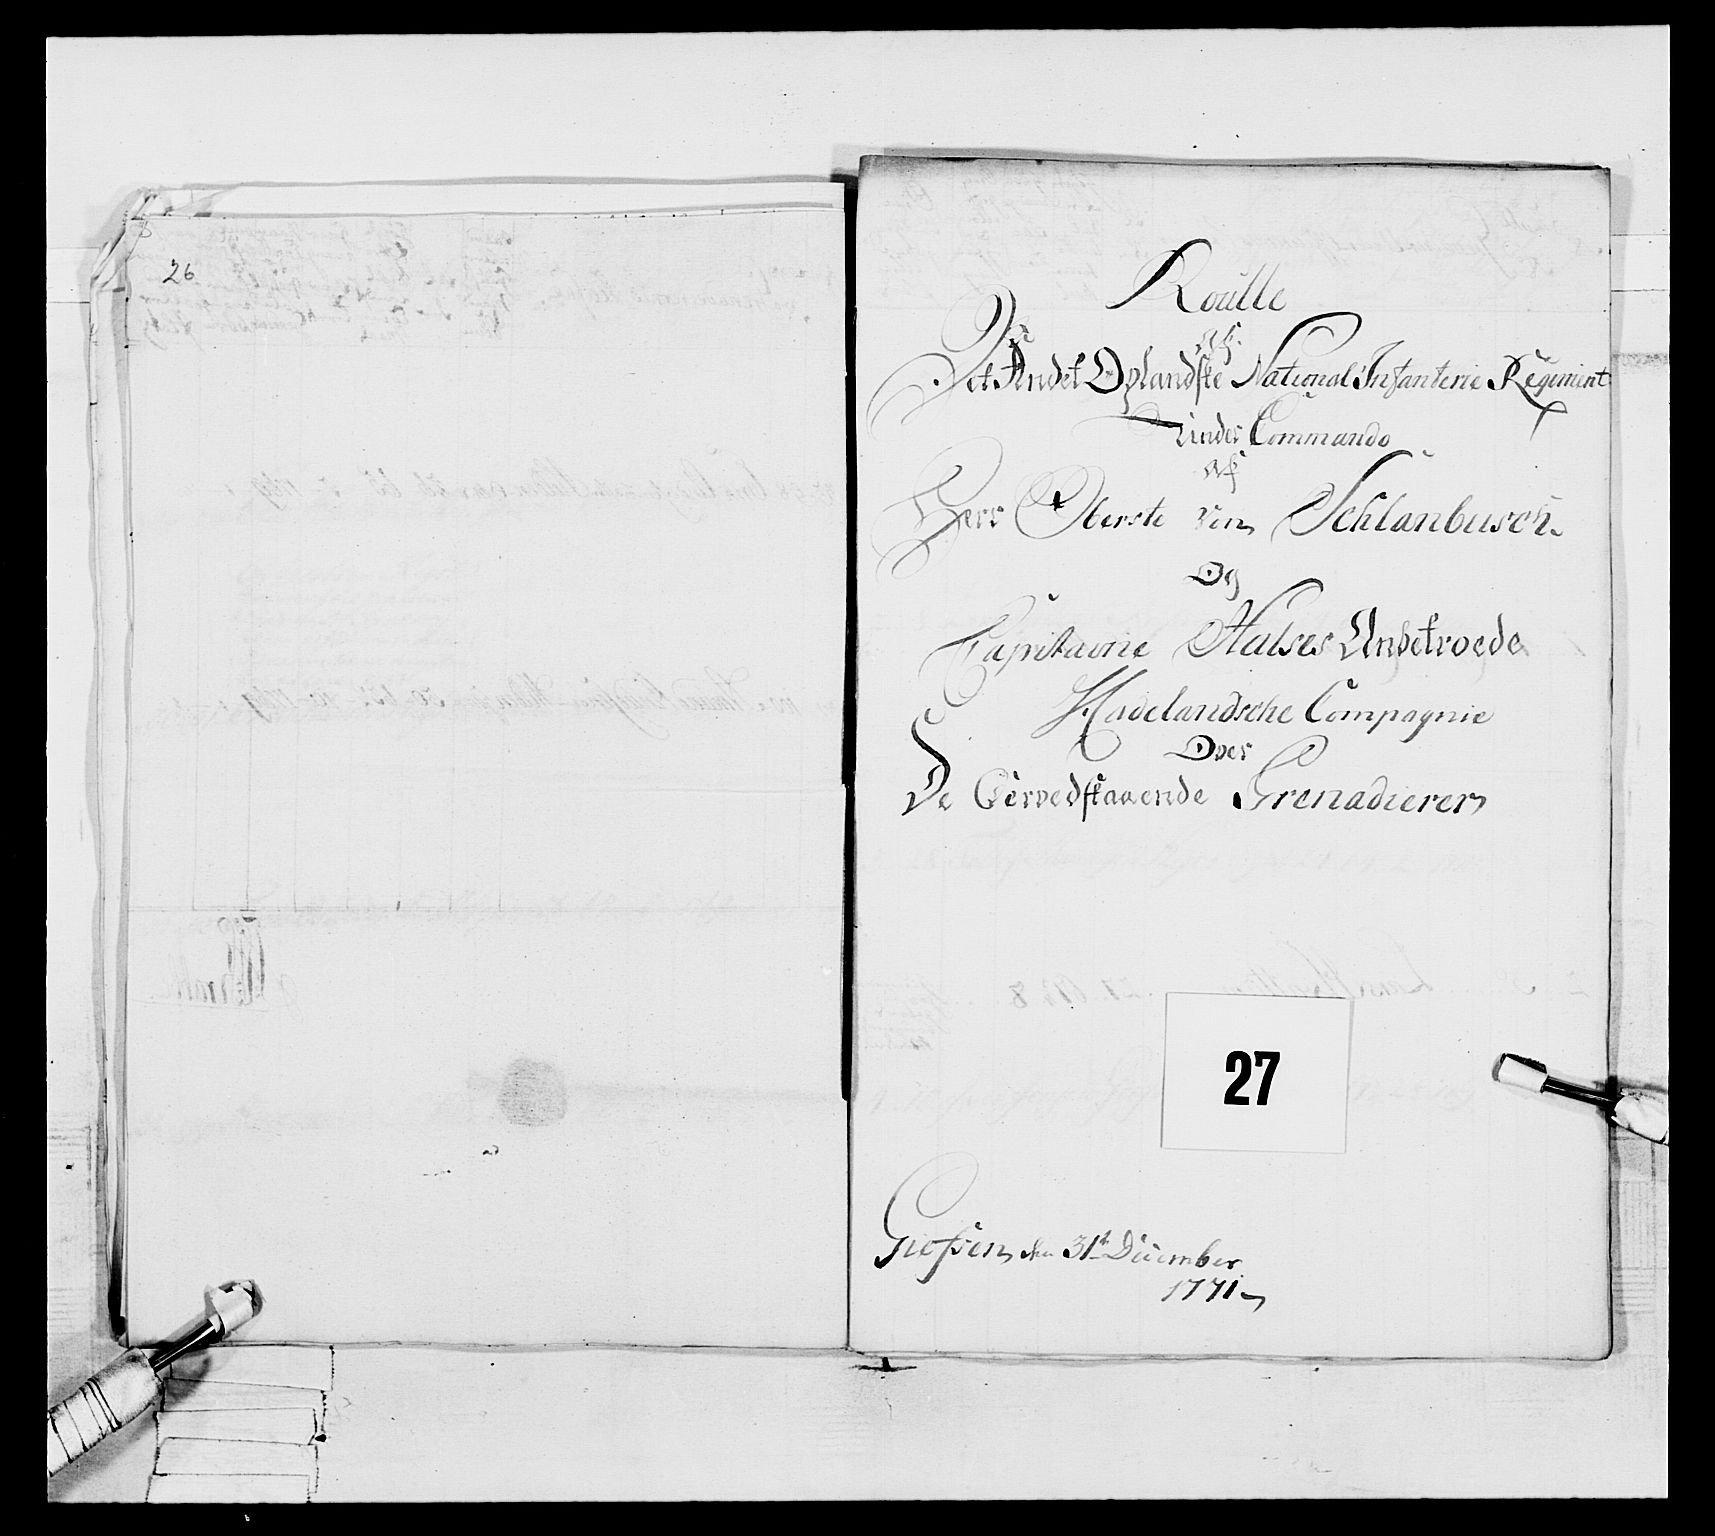 26
Roulle
af
Det Andet Oplandske National Infanterie Regiment
Under Commando
af
Herr Oberste von Schlanbusch.
Og
Capitaine Halses Anbetroede
Hadelandsche Compagnie
Over
De Værvedstaaende Grenadierer
27
den 31t December
1771